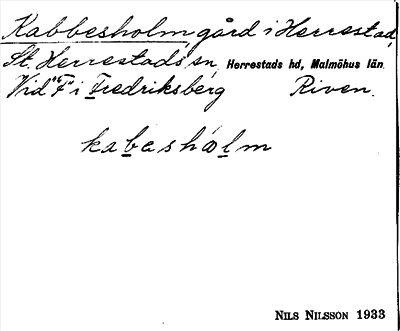 Kabbesholm gård i Herrestad,
St. Herrestads sn, Herrestads hd, Malmöhus län.
Vid "F" i Fredriksberg Riven.
kabesholm
NILS NILSSON 1933